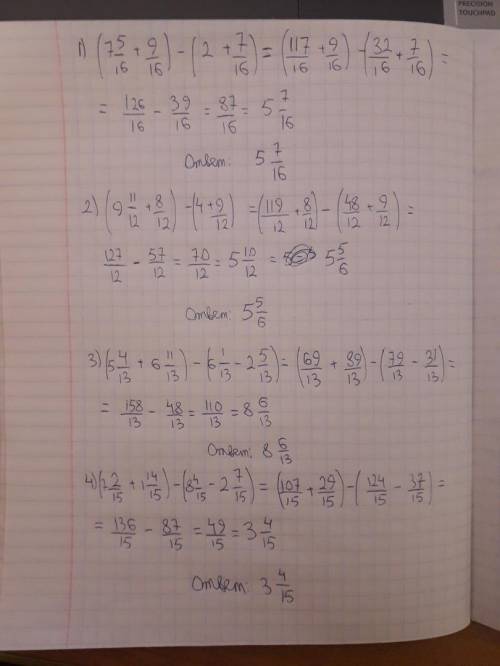 PRECISION
TOUCHPAD
1) (7 5/16 + 9/16) - (2 + 7/16) = (117/16 + 9/16) - (32/16 + 7/16) =
= 126/16 - 39/16 = 87/16 = 5 7/16
Ответ: 5 7/16
2) (9 11/12 + 8/12) - (4 + 9/12) = (119/12 + 8/12) - (48/12 + 9/12) =
127/12 - 57/12 = 70/12 = 5 10/12 = 5 5/6
Ответ: 5 5/6
3) (5 4/13 + 6 11/13) - (6 1/13 - 2 5/13) = (69/13 + 89/13) - (79/13 - 31/13) =
= 158/13 - 48/13 = 110/13 = 8 6/13
Ответ: 8 6/13
4) (7 2/15 + 1 14/15) - (8 4/15 - 2 7/15) = (107/15 + 29/15) - (124/15 - 37/15) =
= 136/15 - 87/15 = 49/15 = 3 4/15
Ответ: 3 4/15